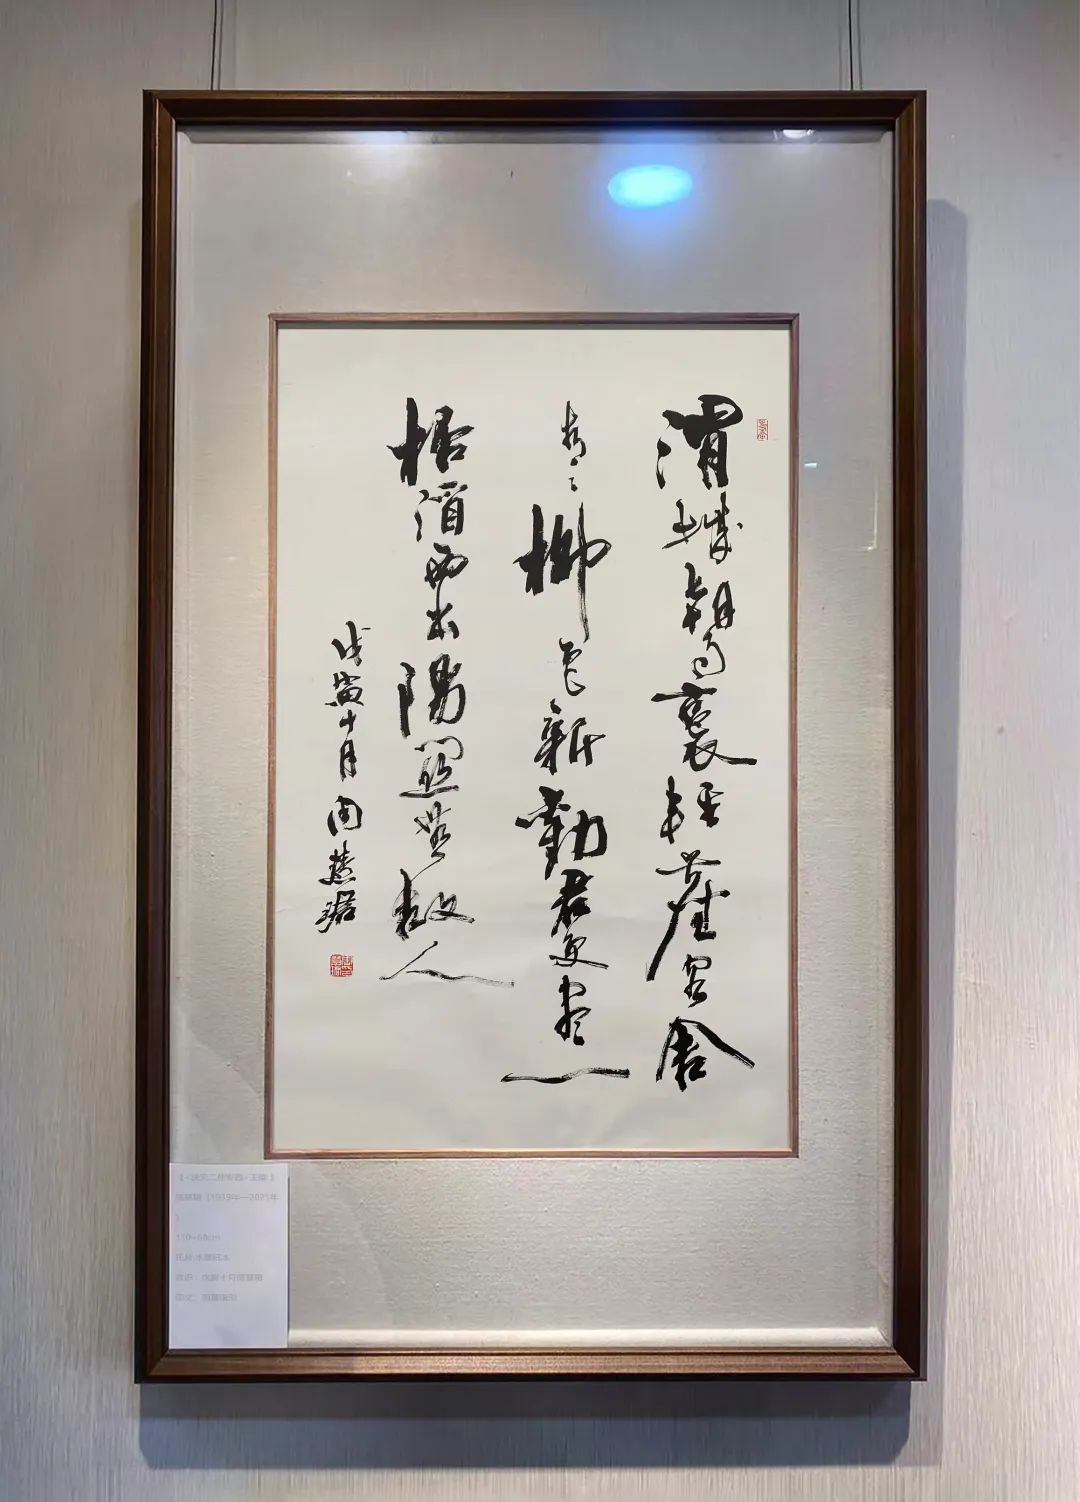 渭城朝雨裛輕塵客舍
青〻柳色新勸君更盡一
杯酒西出陽關無故人
戊寅十月周慧珺
《<送元二使安西>王维》
周慧珺(1939年—2021年
110×68cm
水墨纸本
款识:戊寅十月周慧珺
印文:周慧珺印